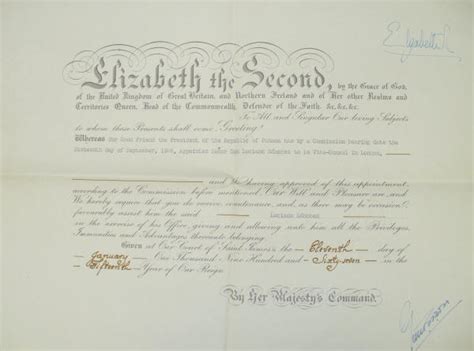 Elizabeth R
Elizabeth the Second, by the Grace of God,
of the United Kingdom of Great Britain and Northern Ireland and of Her other Realms and
Territories Queen, Head of the Commonwealth, Defender of the Faith, &c, &c, &c.
To All and Singular Our loving Subjects
to whom these Presents shall come, Greeting!
Whereas Our Good Friend the President of the Republic of Panama has by a Commission bearing date the
day of September, 1966, appointed to be Vice-Consul in London,
and We having approved of this appointment,
according to the Commission before mentioned, Our Will and Pleasure are, and
We hereby require that you do receive, countenance, and, as there may be occasion,
favourably assist him the said Luciano
in the exercise of his Office, giving and allowing unto him all the Privileges,
Immunities and Advantages thereunto belonging
Given at Our Court of Saint James's, the Eleventh day of
January One Thousand Nine Hundred and Sixty-seven in the
Fifteenth Year of Our Reign
By Her Majesty's Command.